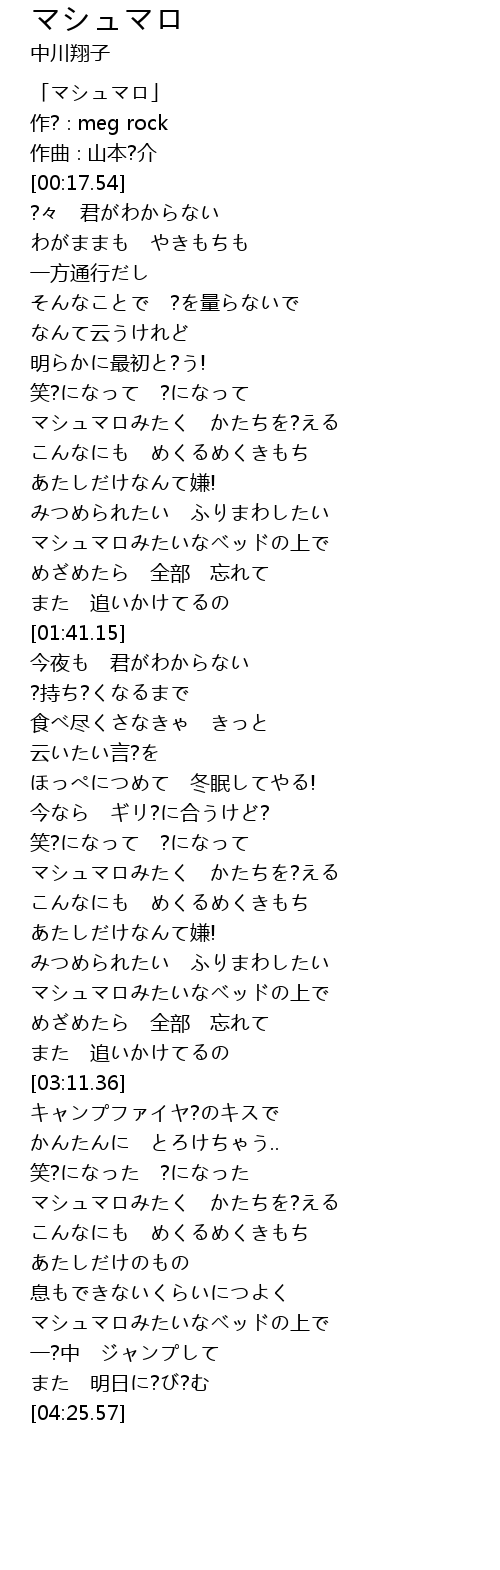 マシュマロ
中川翔子
「マシュマロ」
作? : meg rock
作曲 : 山本?介
[00:17.54]
?々　君がわからない
わがままも　やきもちも
一方通行だし
そんなことで　?を量らないで
なんて云うけれど
明らかに最初と?う!
笑?になって　?になって
マシュマロみたく　かたちを?える
こんなにも　めくるめくきもち
あたしだけなんて嫌!
みつめられたい　ふりまわしたい
マシュマロみたいなベッドの上で
めざめたら　全部　忘れて
また　追いかけてるの
[01:41.15]
今夜も　君がわからない
?持ち?くなるまで
食べ尽くさなきゃ　きっと
云いたい言?を
ほっぺにつめて　冬眠してやる!
今なら　ギリ?に合うけど?
笑?になって　?になって
マシュマロみたく　かたちを?える
こんなにも　めくるめくきもち
あたしだけなんて嫌!
みつめられたい　ふりまわしたい
マシュマロみたいなベッドの上で
めざめたら　全部　忘れて
また　追いかけてるの
[03:11.36]
キャンプファイヤ?のキスで
かんたんに　とろけちゃう..
笑?になった　?になった
マシュマロみたく　かたちを?える
こんなにも　めくるめくきもち
あたしだけのもの
息もできないくらいにつよく
マシュマロみたいなベッドの上で
一?中　ジャンプして
また　明日に?び?む
[04:25.57]